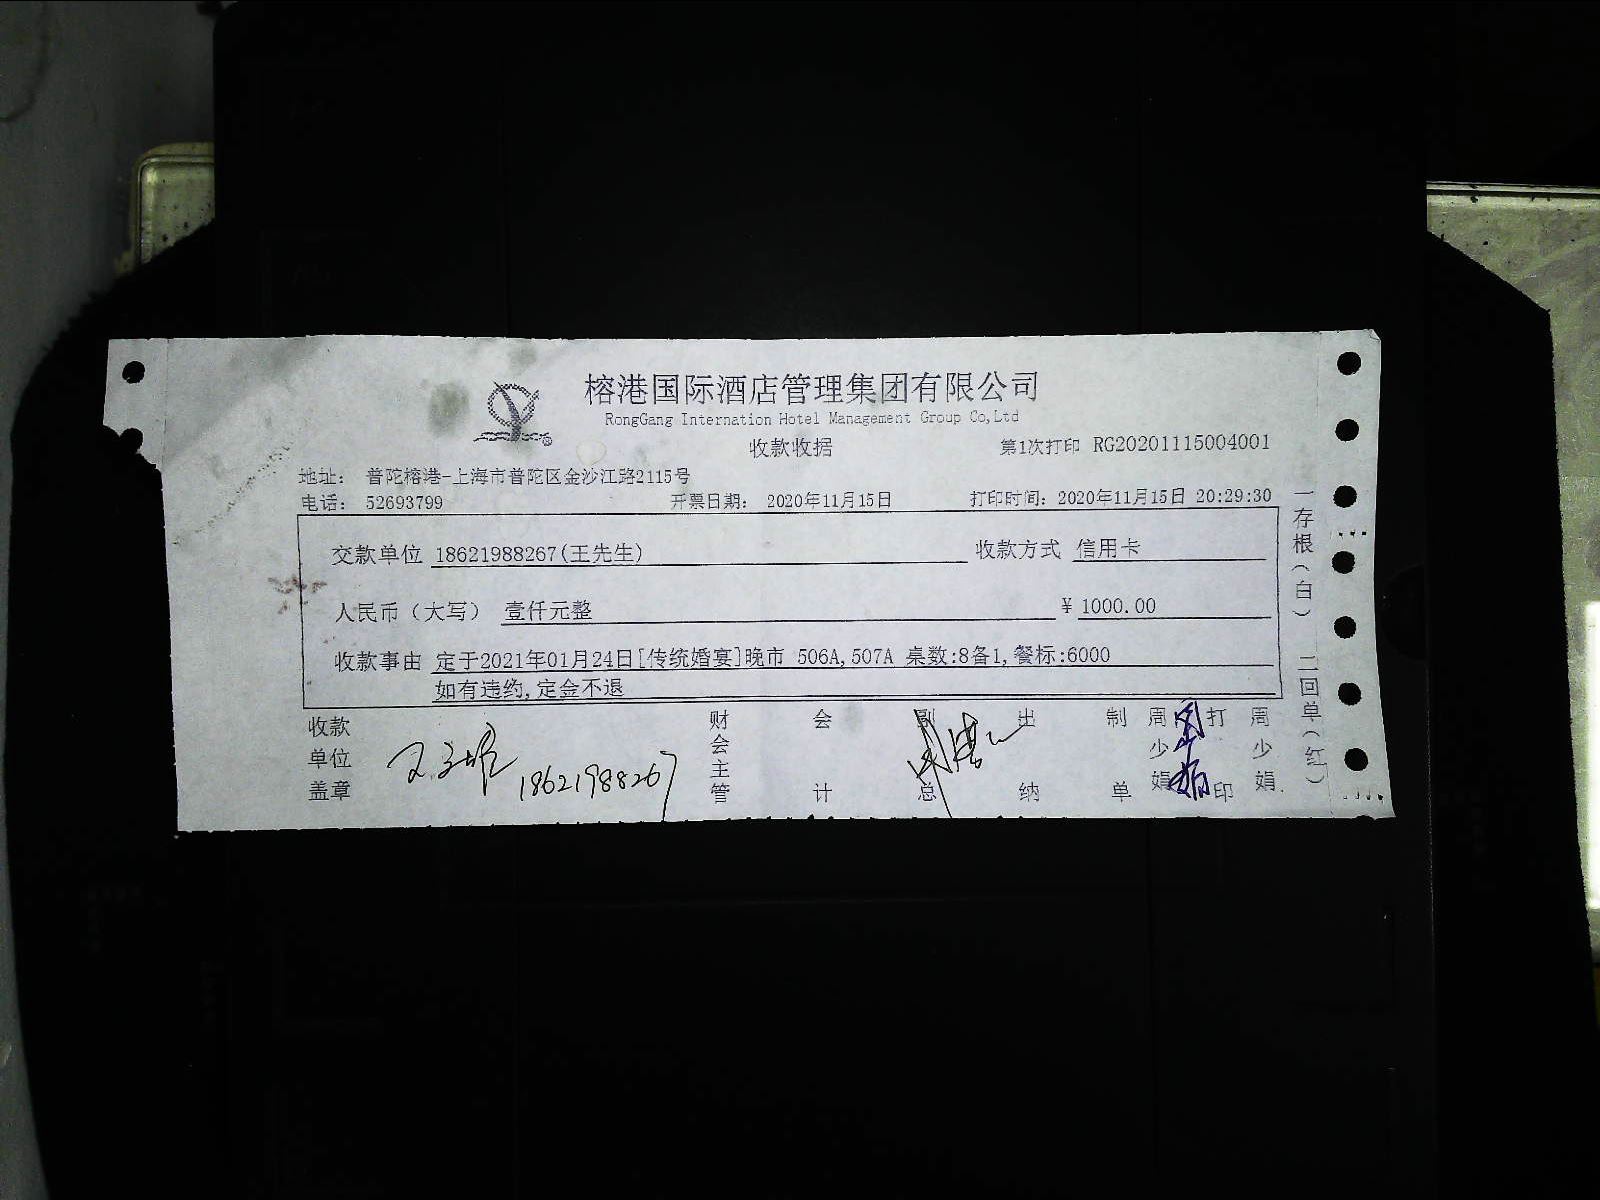 榕港国际酒店管理集团有限公司
RongGang Internation Hotel Management Group Co,Ltd
收款收据
第1次打印 RG20201115004001
地址： 普陀榕港-上海市普陀区金沙江路2115号
电话： 52693799 开票日期： 2020年11月15日 打印时间: 2020年11月15日 20:29:30
交款单位 18621988267(王先生) 收款方式 信用卡
人民币（大写） 壹仟元整 ¥ 1000.00
收款事由 定于2021年01月24日[传统婚宴]晚市 506A,507A 桌数:8备1,餐标:6000
如有违约,定金不退
收款单位盖章 18621988267
财会主管
会计
副总
出纳
制单 周少娟
打印 周少娟
一存根（白） 二回单（红）